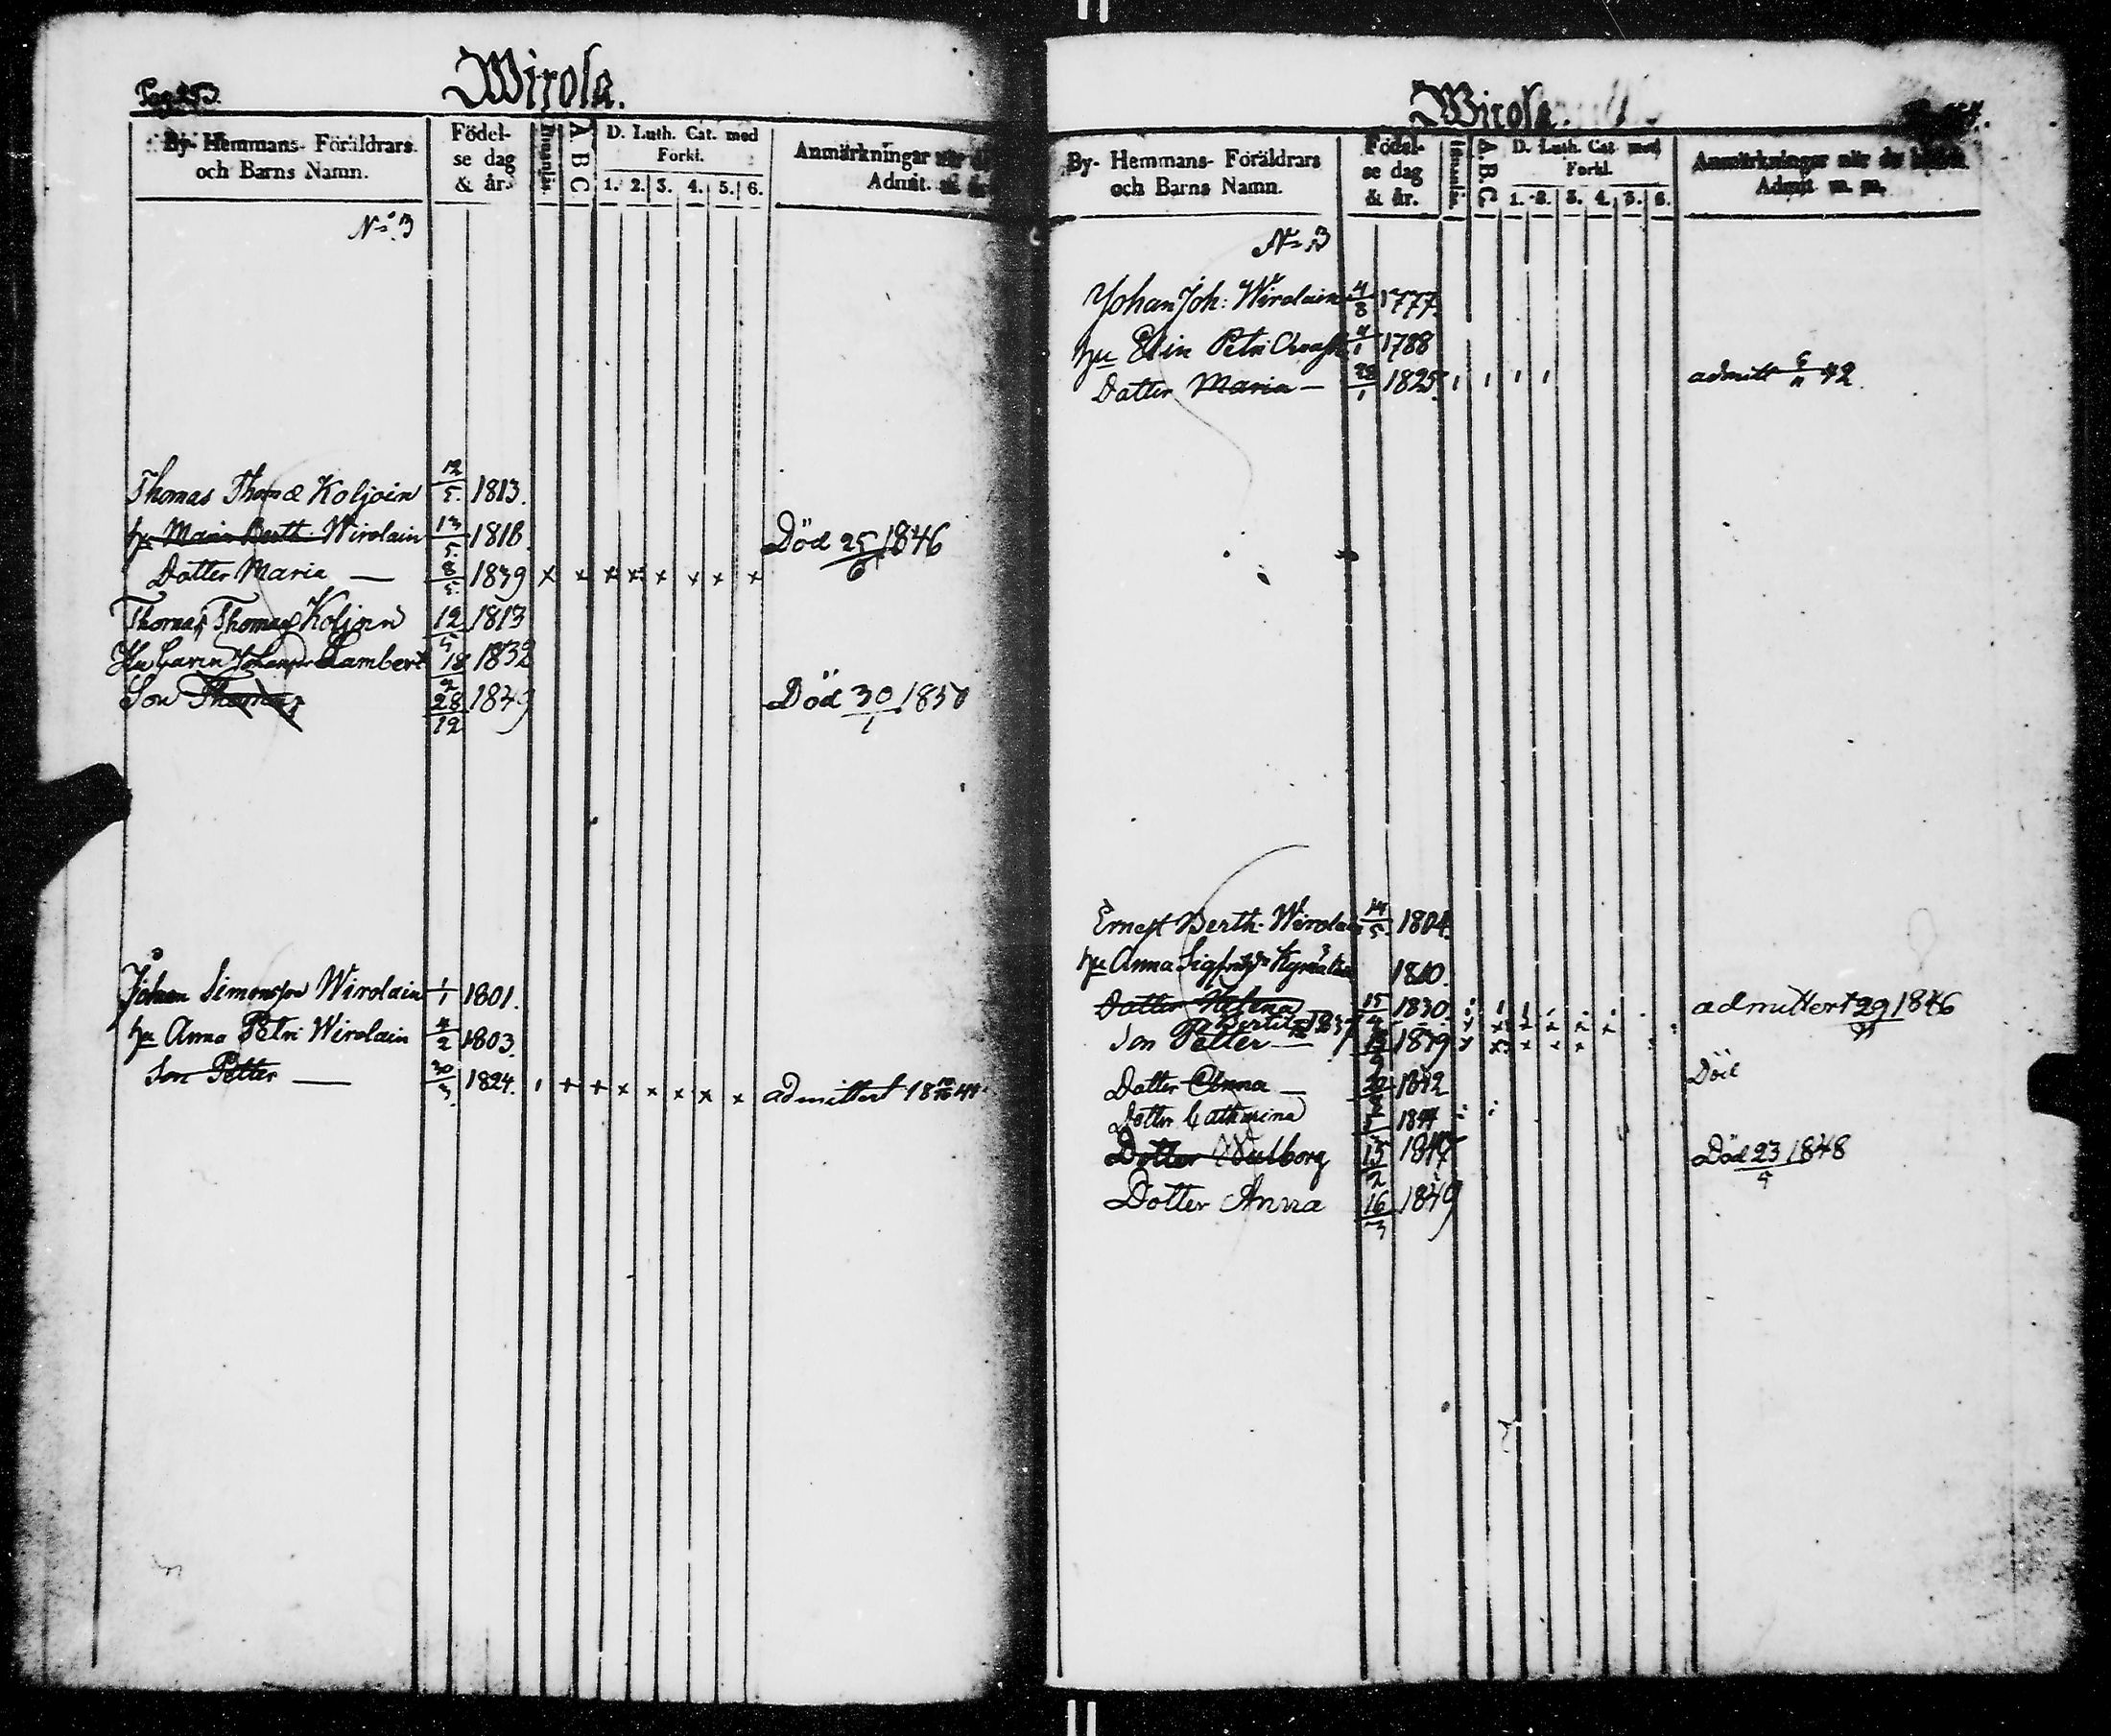 Pag 253.
Wirola.
By- Hemmans- Föräldrars och Barns Namn.
Födel-se dag & år.
Innanläs.
A. B. C.
D. Luth. Cat. med Forkl.
1. 2. 3. 4. 5. 6.
Anmärkningar när
Admit.
No 3
Thomas Thomæ Koljoin 12/5. 1813.
hu Maria Berth. Wirolain 13/5. 1818. Död 25/6 1846
Dotter Maria — 8/5. 1839 x x x x x x x x
Thomas Thomas Koljoin 12/5 1813
Hu Carin Lambert 18/2 1832
Son Thomas 28/12 1849 Död 30/1 1850
Johan Simonsson Wirolain 1/1 1801.
hu Anna Petri Wirolain 4/2 1803.
Son Petter — 30/3. 1824. admittert 18 44.
Wirola.
By- Hemmans- Föräldrars och Barns Namn.
Födel-se dag & år.
A. B. C.
D. Luth. Cat. med Forkl.
1. 2. 3. 4. 5. 6.
Anmärkningar när de
Admit m. m.
No 3
Johan Joh: Wirolain 4/8 1777.
hu Elin Petri 4/1 1788
Datter Maria — 28/1 1825. admitt 42.
Ernest Berth. Wirolain 14/5. 1804.
hu Anna Sigfrids 1810.
Datter Helena 15 1830. admittert 29 1846
Bertil 1837
Son Petter — 1839
Datter Anna — 1842 Död
Dotter Catharina 1844
Dotter Walborg 15/2 1847 Död 23/5 1848
Dotter Anna 16/3 1849